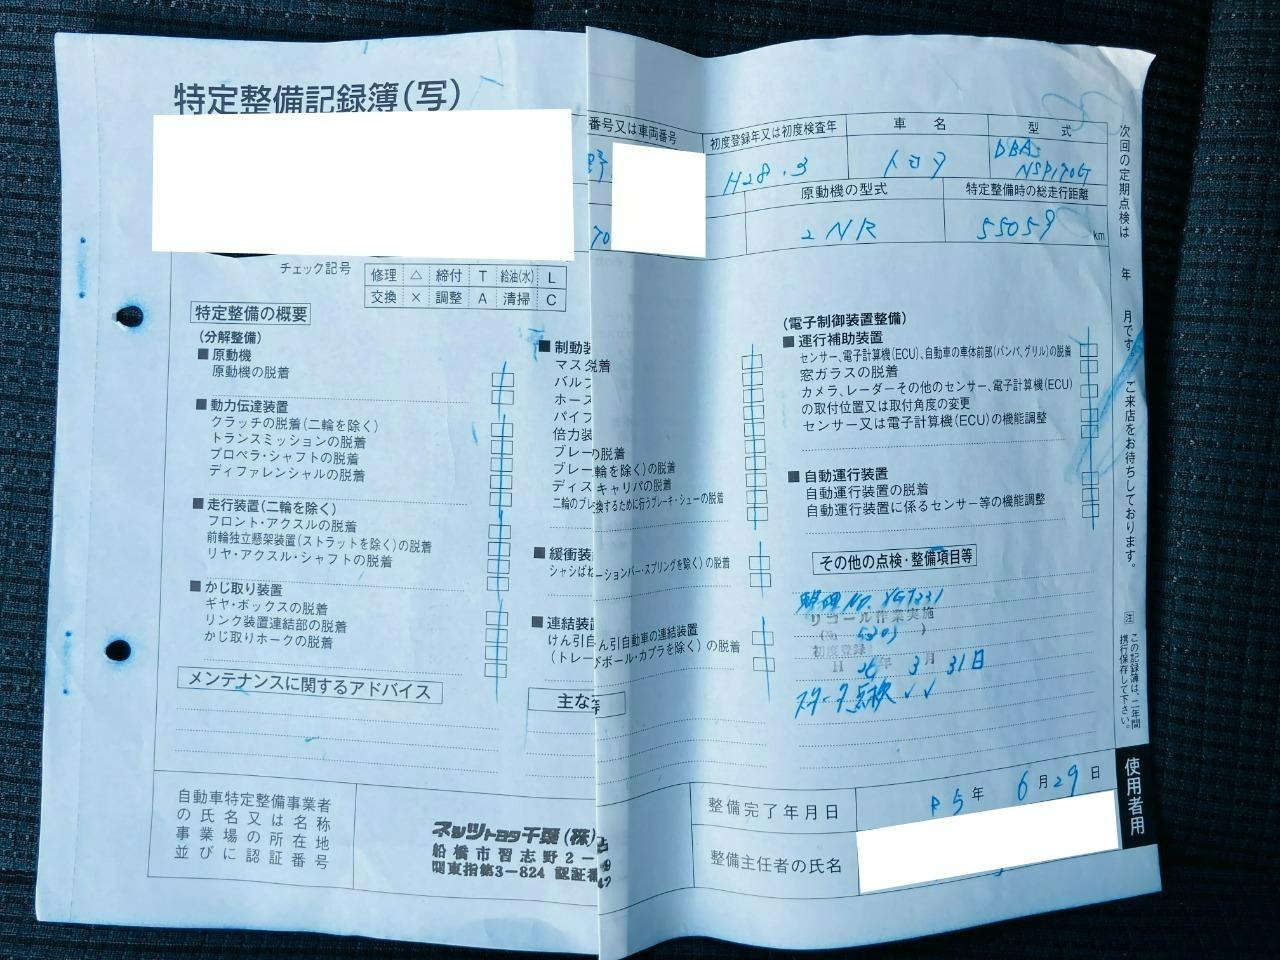 特定整備記録簿(写)
番号又は車両番号
初度登録年又は初度検査年
車名
型式
野
H28.3
トヨタ
DBA-
NSP170G
原動機の型式
特定整備時の総走行距離
70
2NR
55059 km
チェック記号
修理 △ 締付 T 給油(水) L
交換 × 調整 A 清掃 C
特定整備の概要
(分解整備)
■原動機
原動機の脱着
■動力伝達装置
クラッチの脱着(二輪を除く)
トランスミッションの脱着
プロペラ・シャフトの脱着
ディファレンシャルの脱着
■走行装置(二輪を除く)
フロント・アクスルの脱着
前輪独立懸架装置(ストラットを除く)の脱着
リヤ・アクスル・シャフトの脱着
■かじ取り装置
ギヤ・ボックスの脱着
リンク装置連結部の脱着
かじ取りホークの脱着
メンテナンスに関するアドバイス
■制動装
マス 脱着
バルブ
ホース
パイプ
倍力装
ブレー の脱着
ブレー 輪を除く)の脱着
ディス キャリパの脱着
二輪のブレ 換するために行うブレーキ・シューの脱着
■緩衝装
シャシばね ーションバー・スプリングを除く)の脱着
■連結装
けん引自 ん引自動車の連結装置
(トレー びボール・カプラを除く)の脱着
主な
(電子制御装置整備)
■運行補助装置
センサー、電子計算機(ECU)、自動車の車体前部(バンパ、グリル)の脱着
窓ガラスの脱着
カメラ、レーダーその他のセンサー、電子計算機(ECU)
の取付位置又は取付角度の変更
センサー又は電子計算機(ECU)の機能調整
■自動運行装置
自動運行装置の脱着
自動運行装置に係るセンサー等の機能調整
その他の点検・整備項目等
整理No.
リコール作業実施
初度登録
H 年 3月 31日
点検 ✓✓
自動車特定整備事業者
の氏名又は名称
事業場の所在地
並びに認証番号
ネッツトヨタ千葉(株)
船橋市習志野2－
関東指第3-824 認証番
整備完了年月日
R5年 6月29日
整備主任者の氏名
次回の定期点検は 年 月です。ご来店をお待ちしております。
注 この記録簿は、二年間
携行保存して下さい。
使用者用